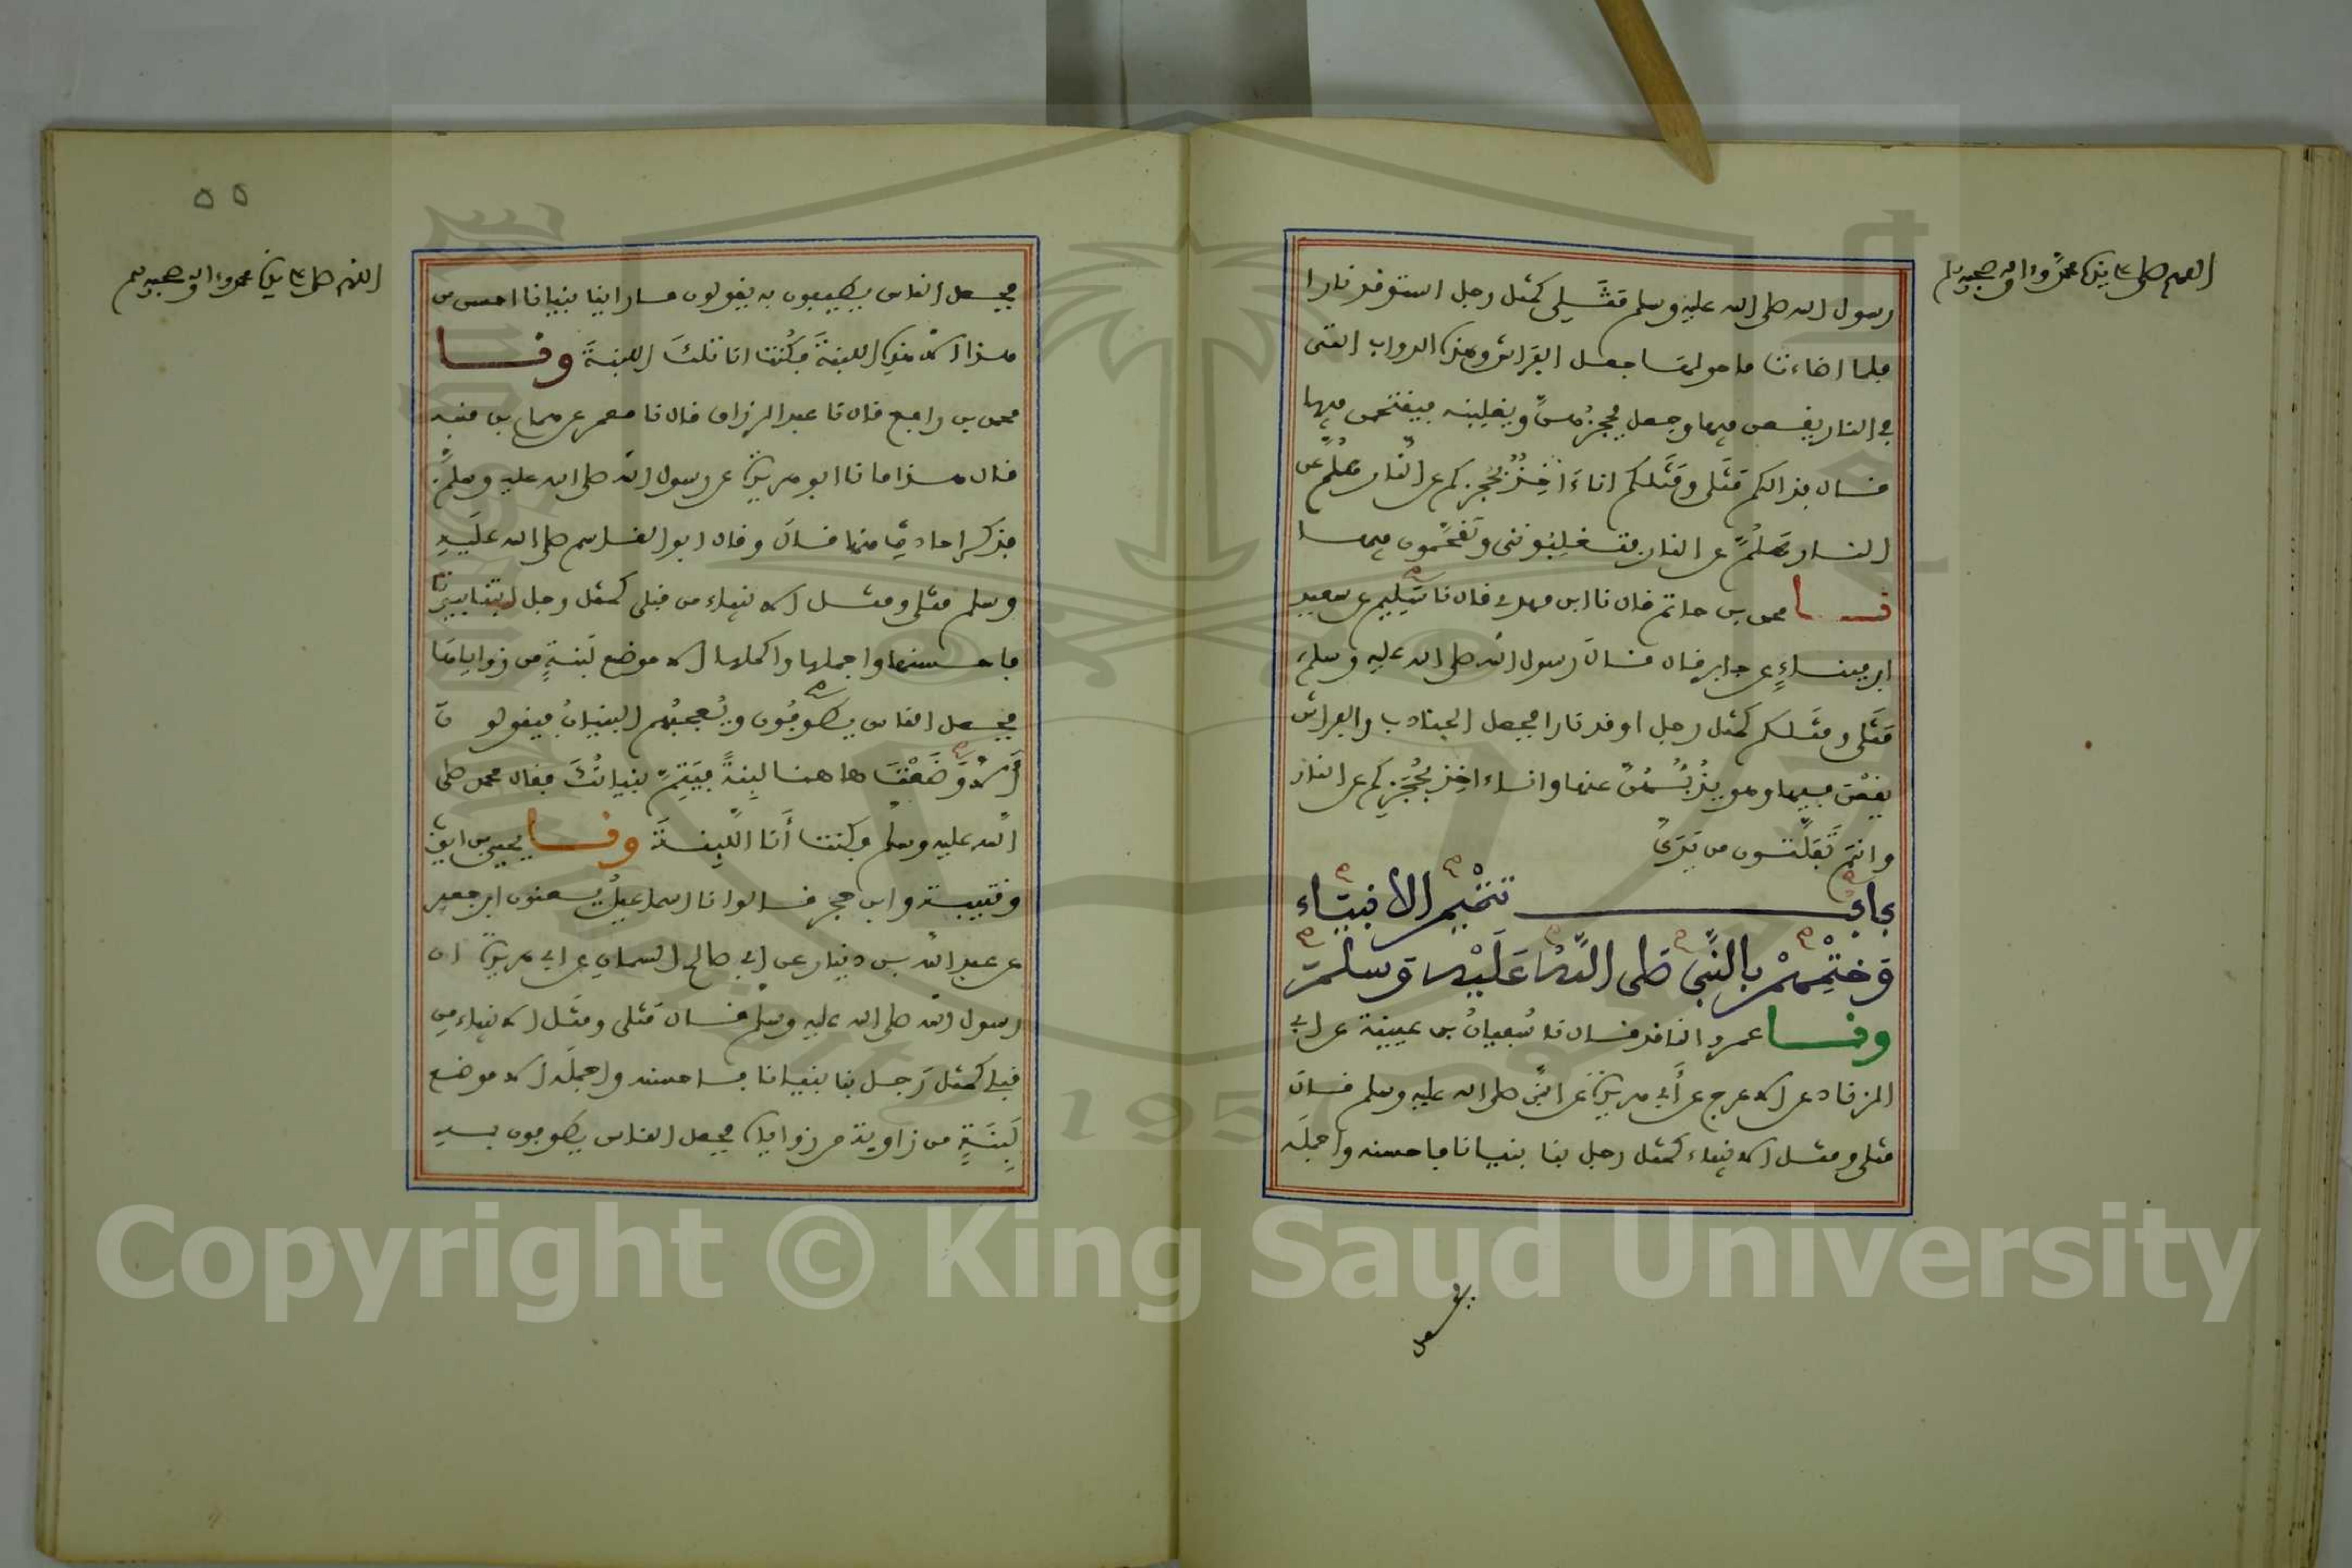 اللهم صل على سيدنا محمد وءاله وصحبه وسلم
رسول الله صلى الله عليه وسلم مَثَلي كمثل رجل استوقد نارا
فلما اضاءت ما حولها جعل الفراش وهذه الدواب التى
في النار يقعن فيها وجعل يحجزهن ويغلبنه فيقتحمن فيها
فال فذالكم مَثَلى ومَثَلكم اناءَاخِذٌ بحُجَزكم عن النار هلم عن
النار هلم عن النار فتغلبونني وتقحمون فيها
نا محمد بن حاتم فال نا ابن مهدي فال نا سَلِيم عن سعيد
ابن ميناءٍ عن جابر فال فال رسول الله صلى الله عليه وسلم
مَثَلى ومثَلكم كمثل رجل اوفد نارا فجعل الجنادب والفراش
يفعْن فيها وهو يذُبُّهُنَّ عنها وانا ءاخِذ بحُجَزِكم عن النار
وانتم تَفَلَّتون من يَدَىَّ
باب تتميم الأنبيَاء
وَخَتْمِهِمْ بالنَّبى صَلى اللَّهُ عَلَيْهِ وَسلم
ونا عمرو النافد فال نا سُفيانُ بن عيينة عن ابي
الزناد عن الاعرج عن أبي هريرة عن النبي صلى الله عليه وسلم فال
مثلى ومثل الانبياء كمثل رجل بنا بنيانا فاحسنه واجمله
55
اللهم صل على سيدنا محمد وءاله وصحبه وسلم
فجعل الناس يطيفون به يفولون ما راينا بنيانا احسن من
هذا الا هذه اللبنةَ فكُنْتُ انا تلكَ اللبنةَ ونا
محمد بن رافع فال نا عبد الرزاف فال نا معمر عن همام بن منبه
فال هذا ما نا ابو هريرة عن رسول الله صلى الله عليه وسلم
فذكر احاديث منها فال وفال ابو الفاسم صلى الله عليه
وسلم مثلى ومثل الانبياء من فبلى كمثل رجل ابتنا بيوتا
فاحسنها واجملها واكملها الا موضع لَبِنةٍ من زواياها
فجعل الناس يطوفُون ويُعجبُهم البنيانُ فيفولون
أَلا وَضَعْتَ هاهنا لبِنةً فيَتِمَّ بنيانُكَ ففال محمد صلى
الله عليه وسلم فكنت أَنا اللَّبِنةَ ونا يحيى بن ايوب
وفتيبة وابن حجر فالوا نا اسماعيلُ يعنون ابن جعفر
عن عبد الله بن دينار عن ابي صالح السمان عن ابي هريرة ان
رسول الله صلى الله عليه وسلم فال مَثلى ومثَل الانبياء من
فبلي كمثل رَجل بنا بنيانا فاحسنه واجملَه الا موضع
لَبِنَةٍ من زاوية من زواياه فجعل الناس يطوفون به
Copyright © King Saud University
1957